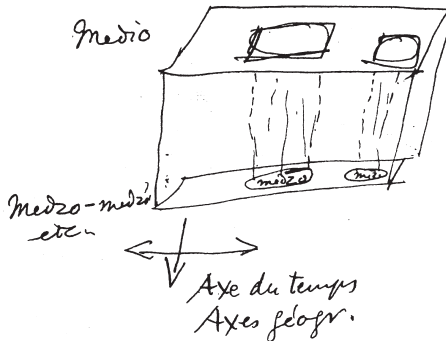 Medio
medzo
medzo-medźo
etc.
Axe du temps
Axes géogr.